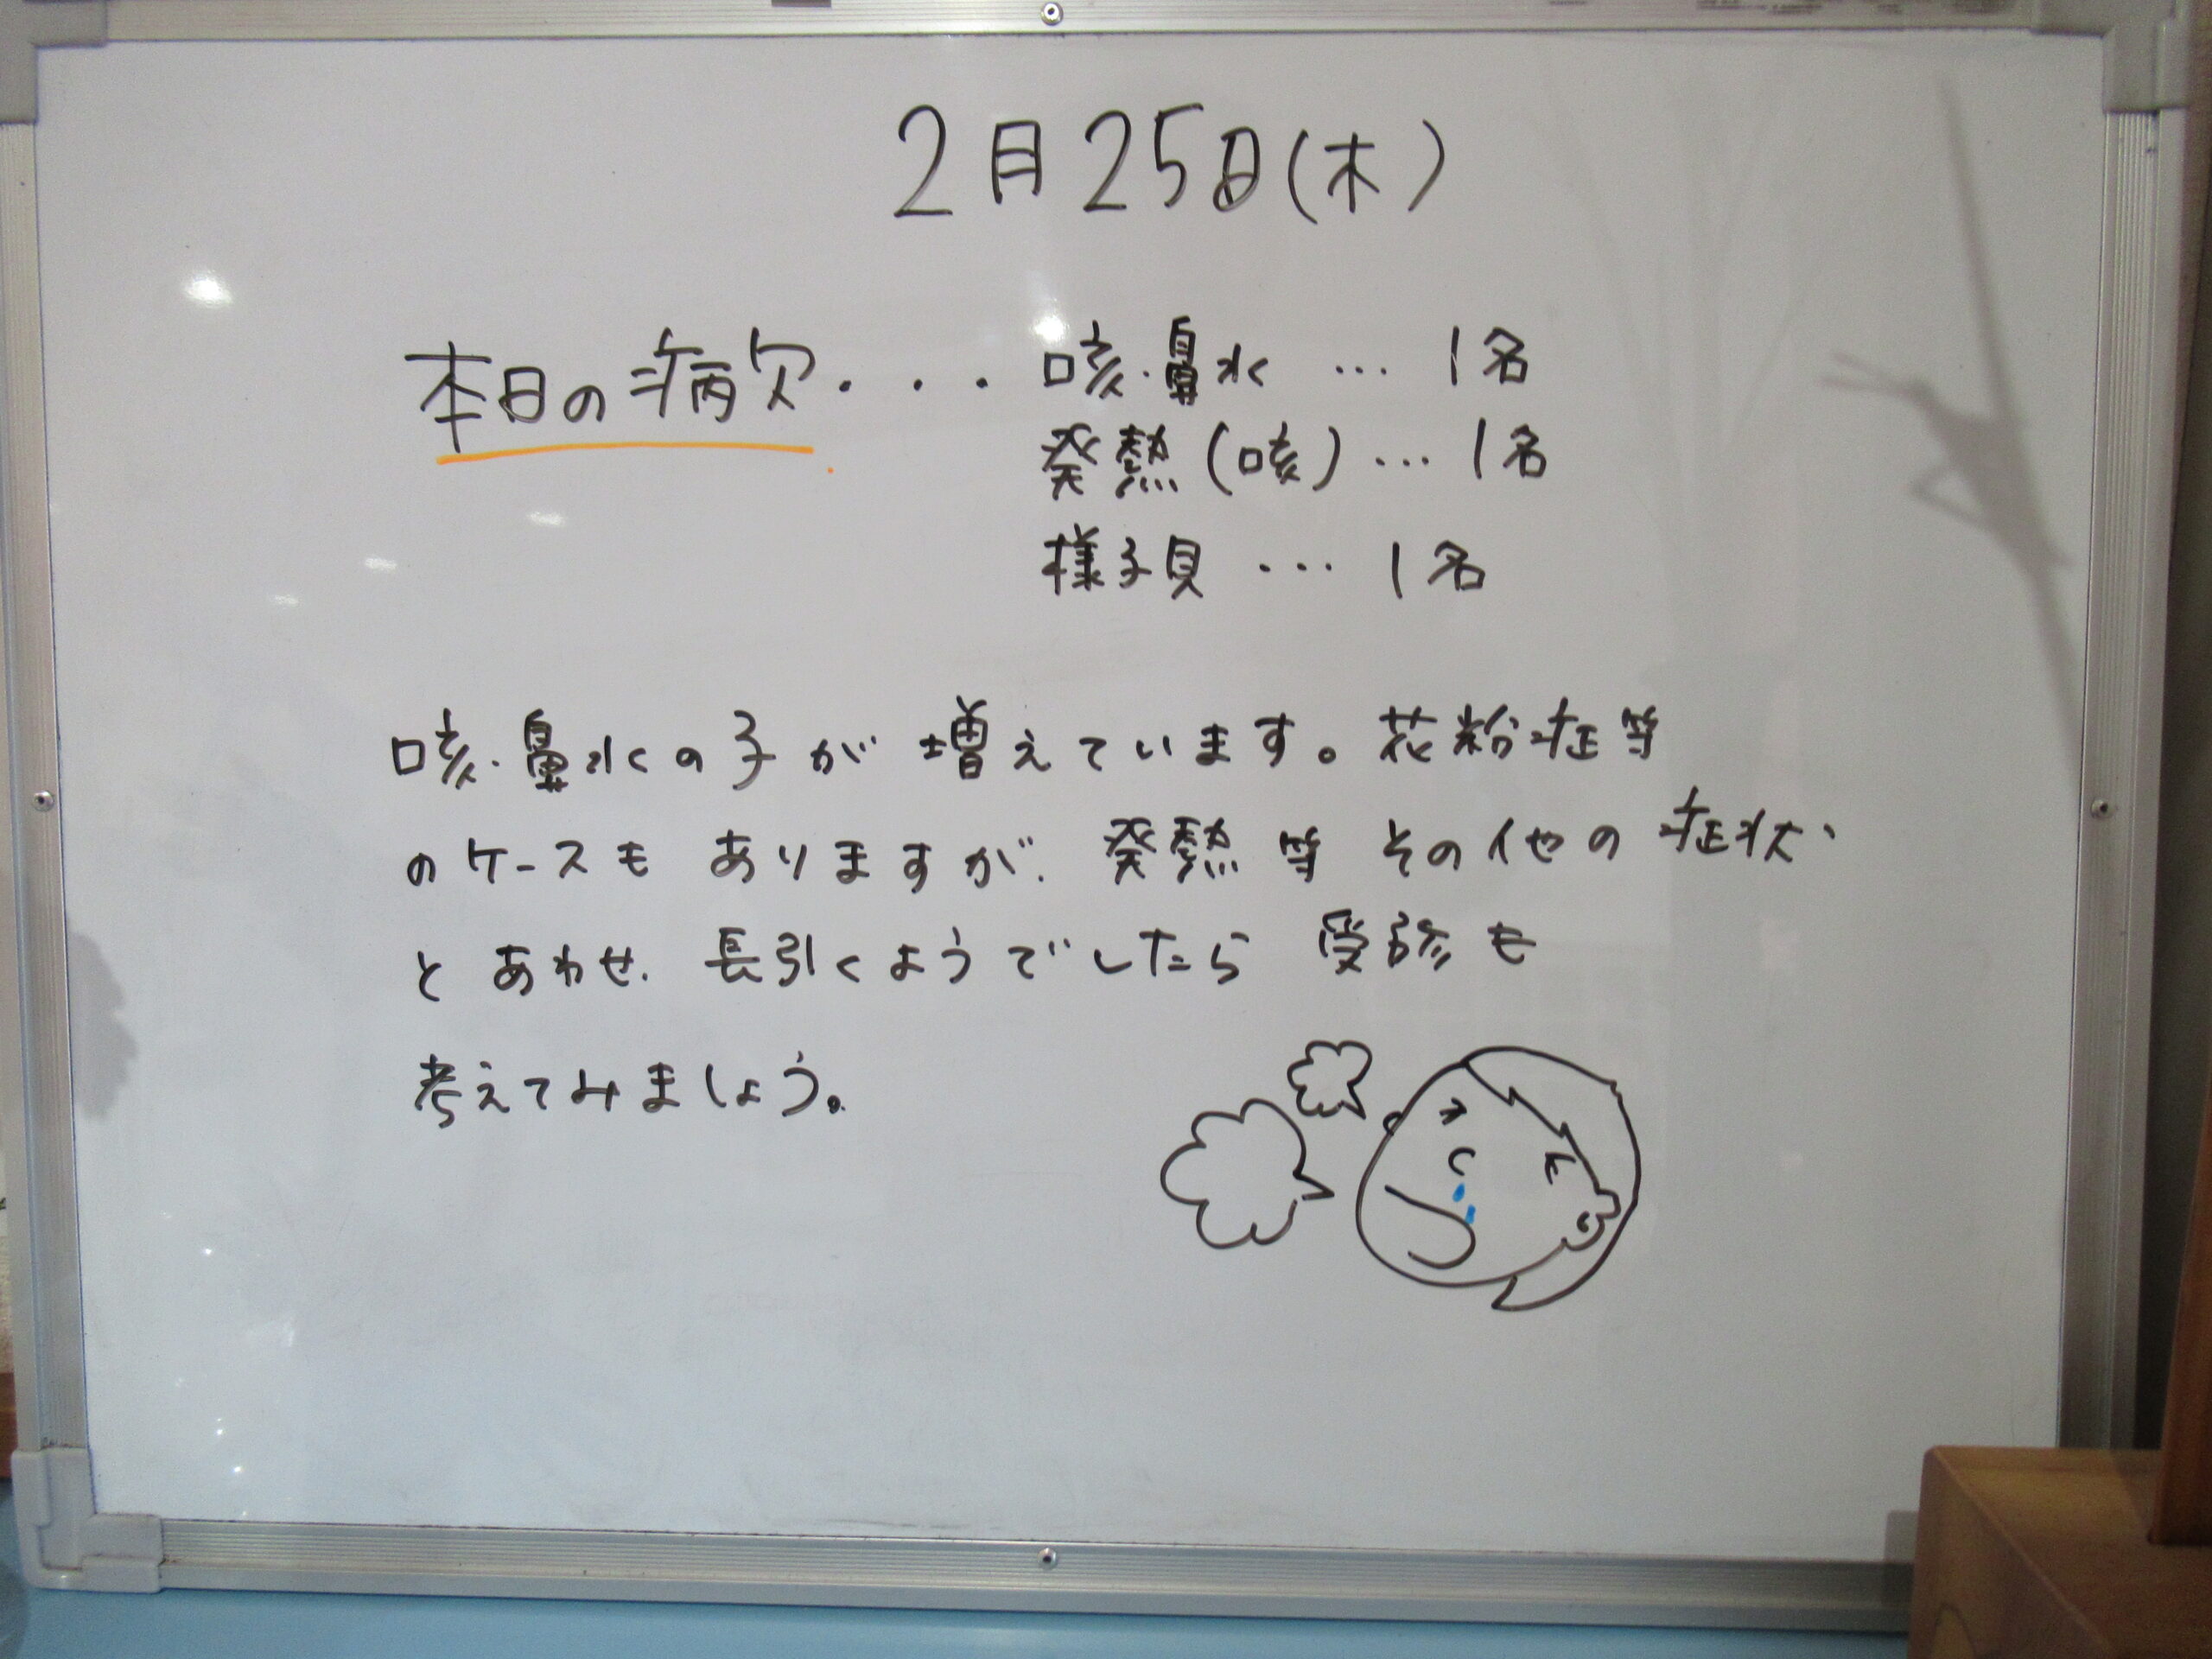 2月25日(木)
本日の病欠・・・咳・鼻水…1名
発熱(咳)…1名
様子見…1名
咳・鼻水の子が増えています。花粉症等
のケースもありますが、発熱等その他の症状
とあわせ、長引くようでしたら受診も
考えてみましょう。